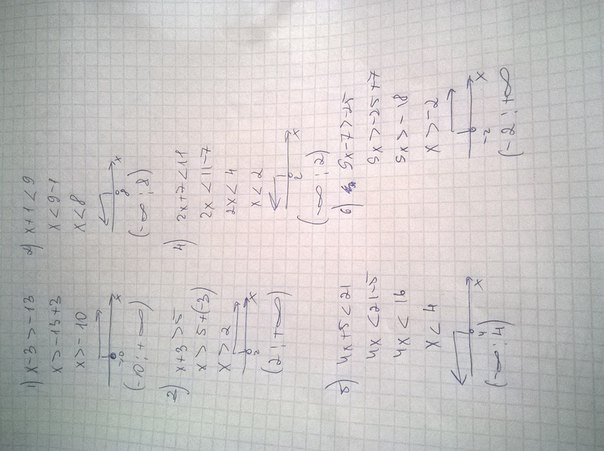 1) x-3>-13
x>-13+3
x>-10
x
-10
(-10;+∞)
2) x+1<9
x<9-1
x<8
x
8
(-∞;8)
2) x+3>5
x>5+(-3)
x>2
x
2
(2;+∞)
4) 2x+7<11
2x<11-7
2x<4
x<2
x
2
(-∞;2)
5) 4x+5<21
4x<21-5
4x<16
x<4
x
4
(-∞;4)
6) 9x-7>-25
9x>-25+7
9x>-18
x>-2
x
-2
(-2;+∞)